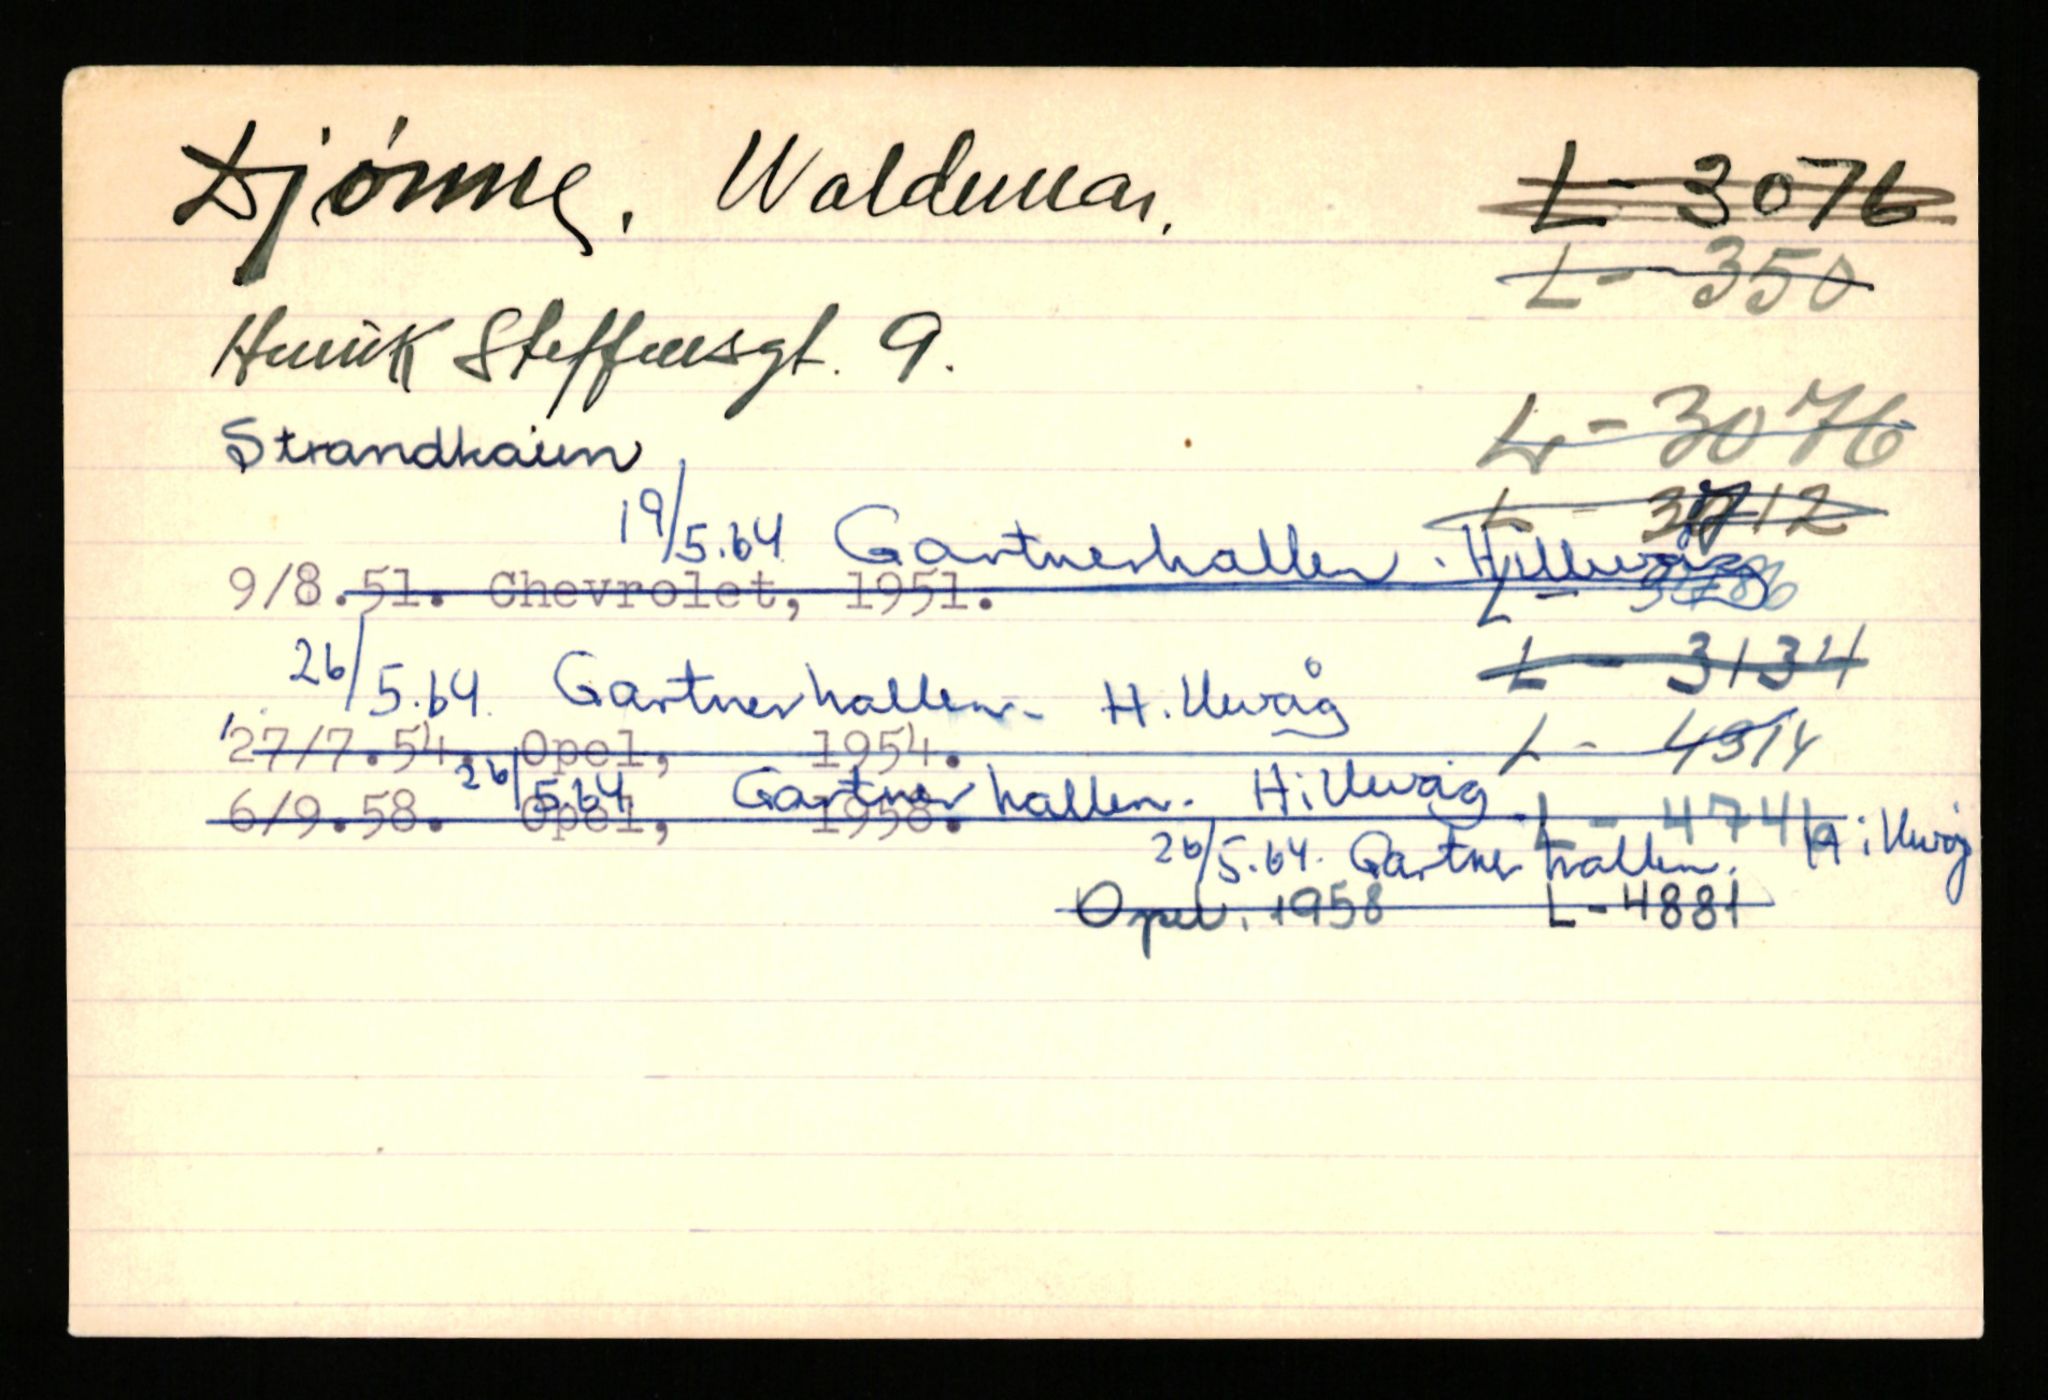 Djønne, Waldemar. L-3076
L-350
Henrik Steffensgt. 9.
L-3076
Strandkaien
L - 3712
19/5.64 Gartnerhallen. Hillevåg
9/8.51. Chevrolet, 1951. L-
L - 3134
26/5.64. Gartnerhallen- Hillevåg
27/7.54. Opel, 1954. L - 4314
26/5.64 Gartnerhallen- Hillevåg
6/9.58. Opel, 1958. L - 4746
26/5.64. Gartnerhallen. Hillevåg
Opel. 1958 L-4881